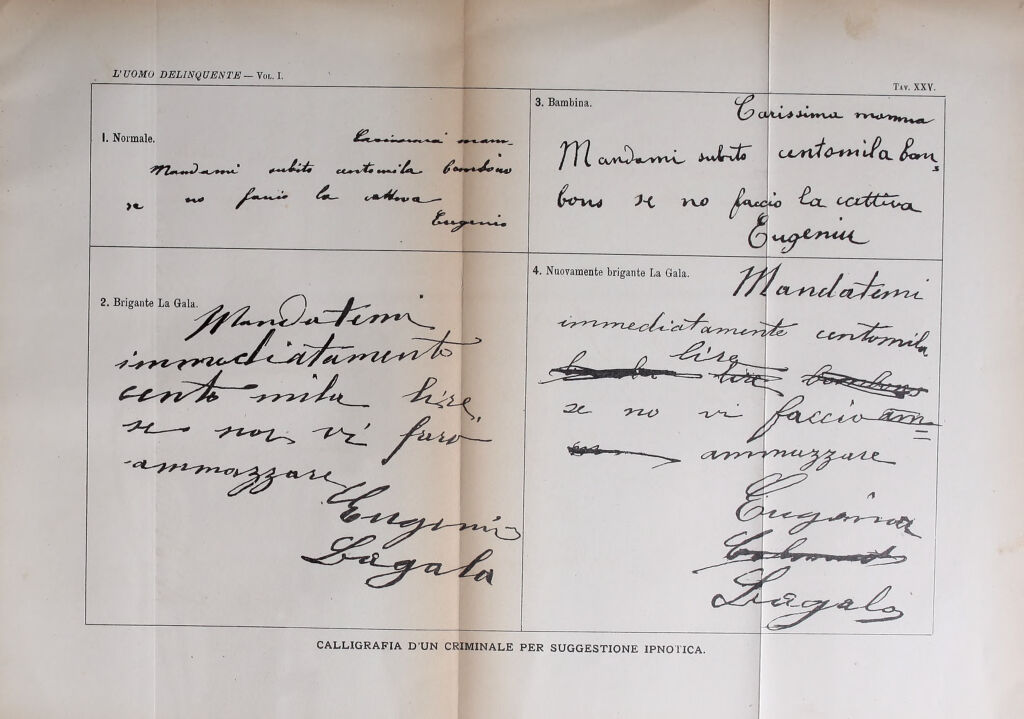 L'UOMO DELINQUENTE — VOL. I.
TAV. XXV.
1. Normale.
mam-
Mandami subito centomila bonbons
se no faccio la cattiva
Eugenio
3. Bambina.
Carissima mamma
Mandami subito centomila bon-
bons se no faccio la cattiva
Eugenia
2. Brigante La Gala.
Mandatemi
immediatamente
cento mila lire,
se non vi farò
ammazzare
Eugenio
Lagala
4. Nuovamente brigante La Gala.
Mandatemi
immediatamente centomila
lire
lire bombons
se no vi faccio am=
ammazzare
Lagala
CALLIGRAFIA D'UN CRIMINALE PER SUGGESTIONE IPNOTICA.